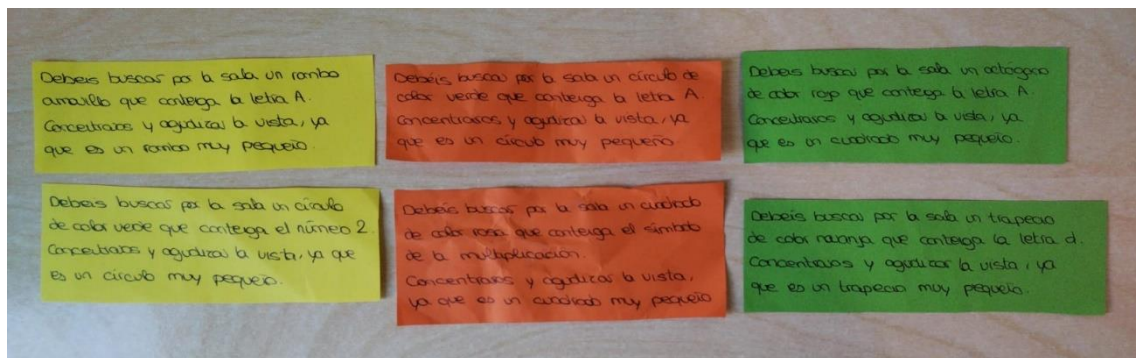 Debeis buscar por la sala un rombo
amarillo que contenga la letra A.
Concentraros y agudizar la vista, ya
que es un rombo muy pequeño.
Debéis buscar por la sala un círculo de
color verde que contenga la letra A.
Concentraros y agudizar la vista, ya
que es un círculo muy pequeño.
Debeis buscar por la sala un octógono
de color rojo que contega la letra A.
Concentraros y agudizar la vista, ya
que es un cuadrado muy pequeño.
Debeis buscar por la sala un círculo
de color verde que contenga el número 2.
Concentraros y agudizar la vista, ya que
es un círculo muy pequeño.
Debeis buscar por la sala un cuadrado
de color rosa que contenga el símbolo
de la multiplicación.
Concentraros y agudizar la vista,
ya que es un cuadrado muy pequeño
Debeis buscar por la sala un trapecio
de color naranja que contenga la letra d.
Concentraros y agudizar la vista, ya
que es un trapecio muy pequeño.